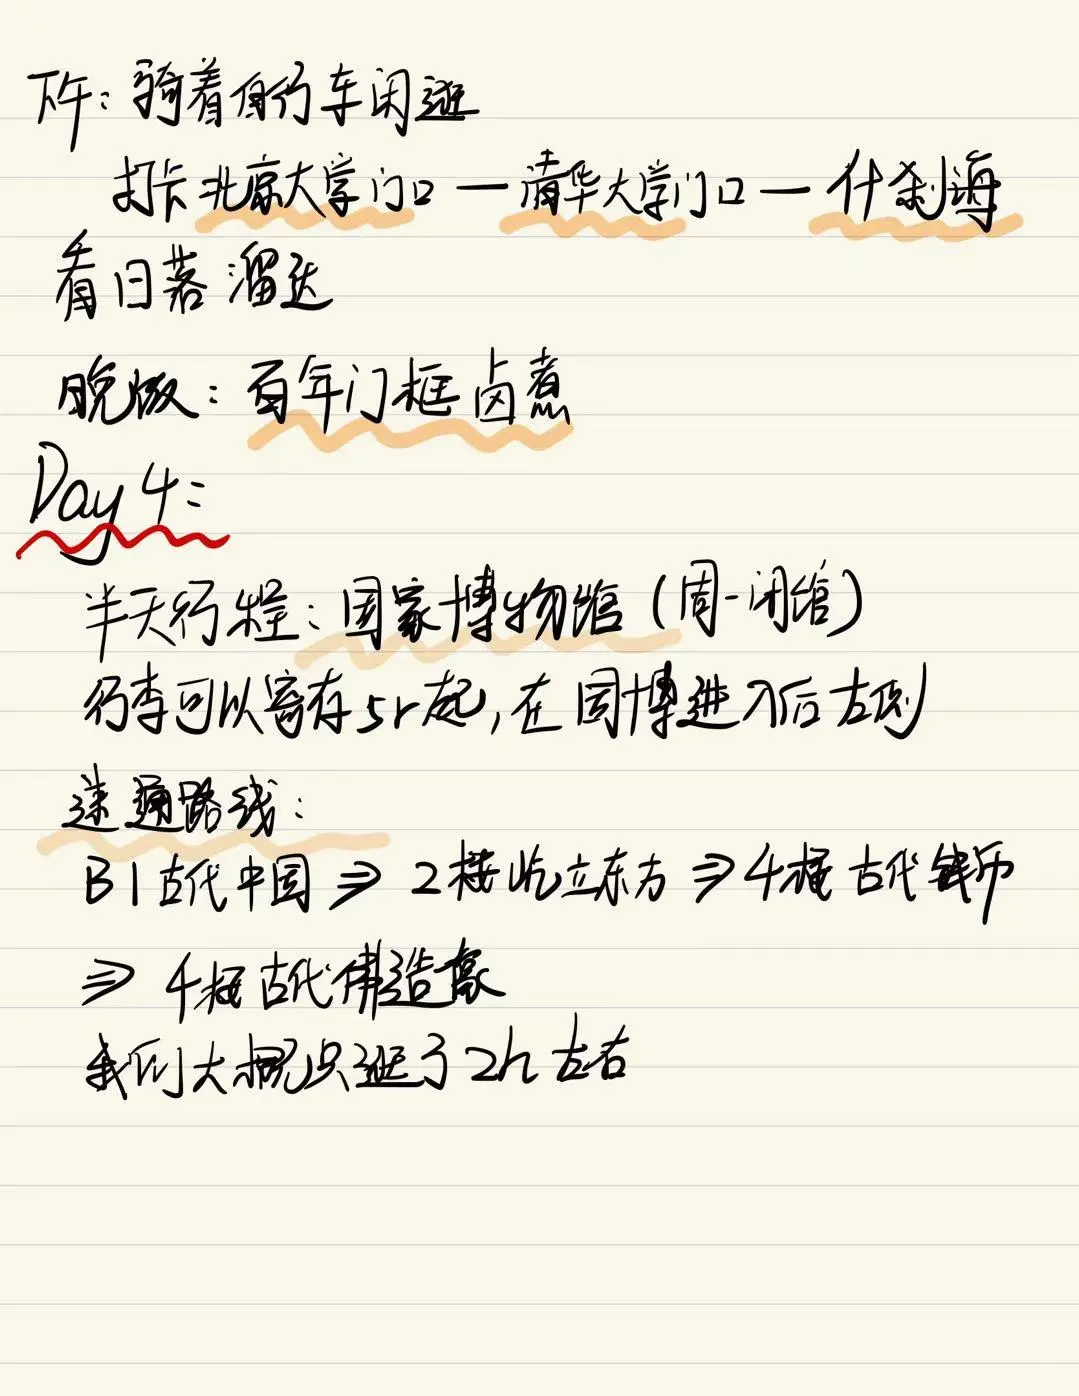 下午：骑着自行车闲逛
打卡北京大学门口一清华大学门口一什刹海
看日落溜达
晚饭：百年门框卤煮
Day 4：
半天行程：国家博物馆（周一闭馆）
行李可以寄存5r起，在国博进入后左侧
速通路线：
B1古代中国⇒2楼屹立东方⇒4楼古代钱币
⇒4楼古代佛造像
我们大概只逛了2h左右